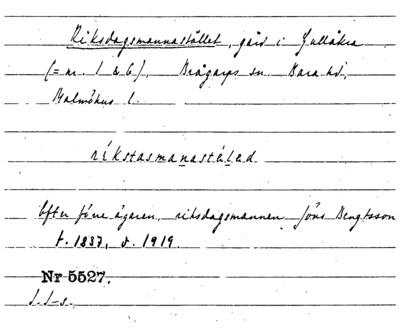 Riksdagsmannastället, gård i Gullåkra
(= nr. 1 & 6), Brågarps sn. Bara hd,
Malmöhus l.
ríkstasmanastäled
Efter förre ägaren, riksdagsmannen Jöns Bengtsson
f. 1837, d. 1919.
Nr 5527.